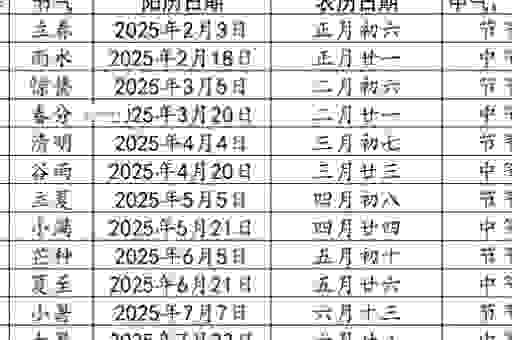 节气 阳历日期 农历日期 中气
立春 2025年2月3日 正月初六 节
雨水 2025年2月18日 正月廿一 中
惊蛰 2025年3月5日 二月初六 节
春分 2025年3月20日 二月廿一 中
清明 2025年4月4日 三月初七 节
谷雨 2025年4月20日 三月廿三 中
立夏 2025年5月5日 四月初八 节
小满 2025年5月21日 四月廿四 中
芒种 2025年6月5日 五月初十 节
夏至 2025年6月21日 五月廿六 中
小暑 2025年7月7日 六月十三 节